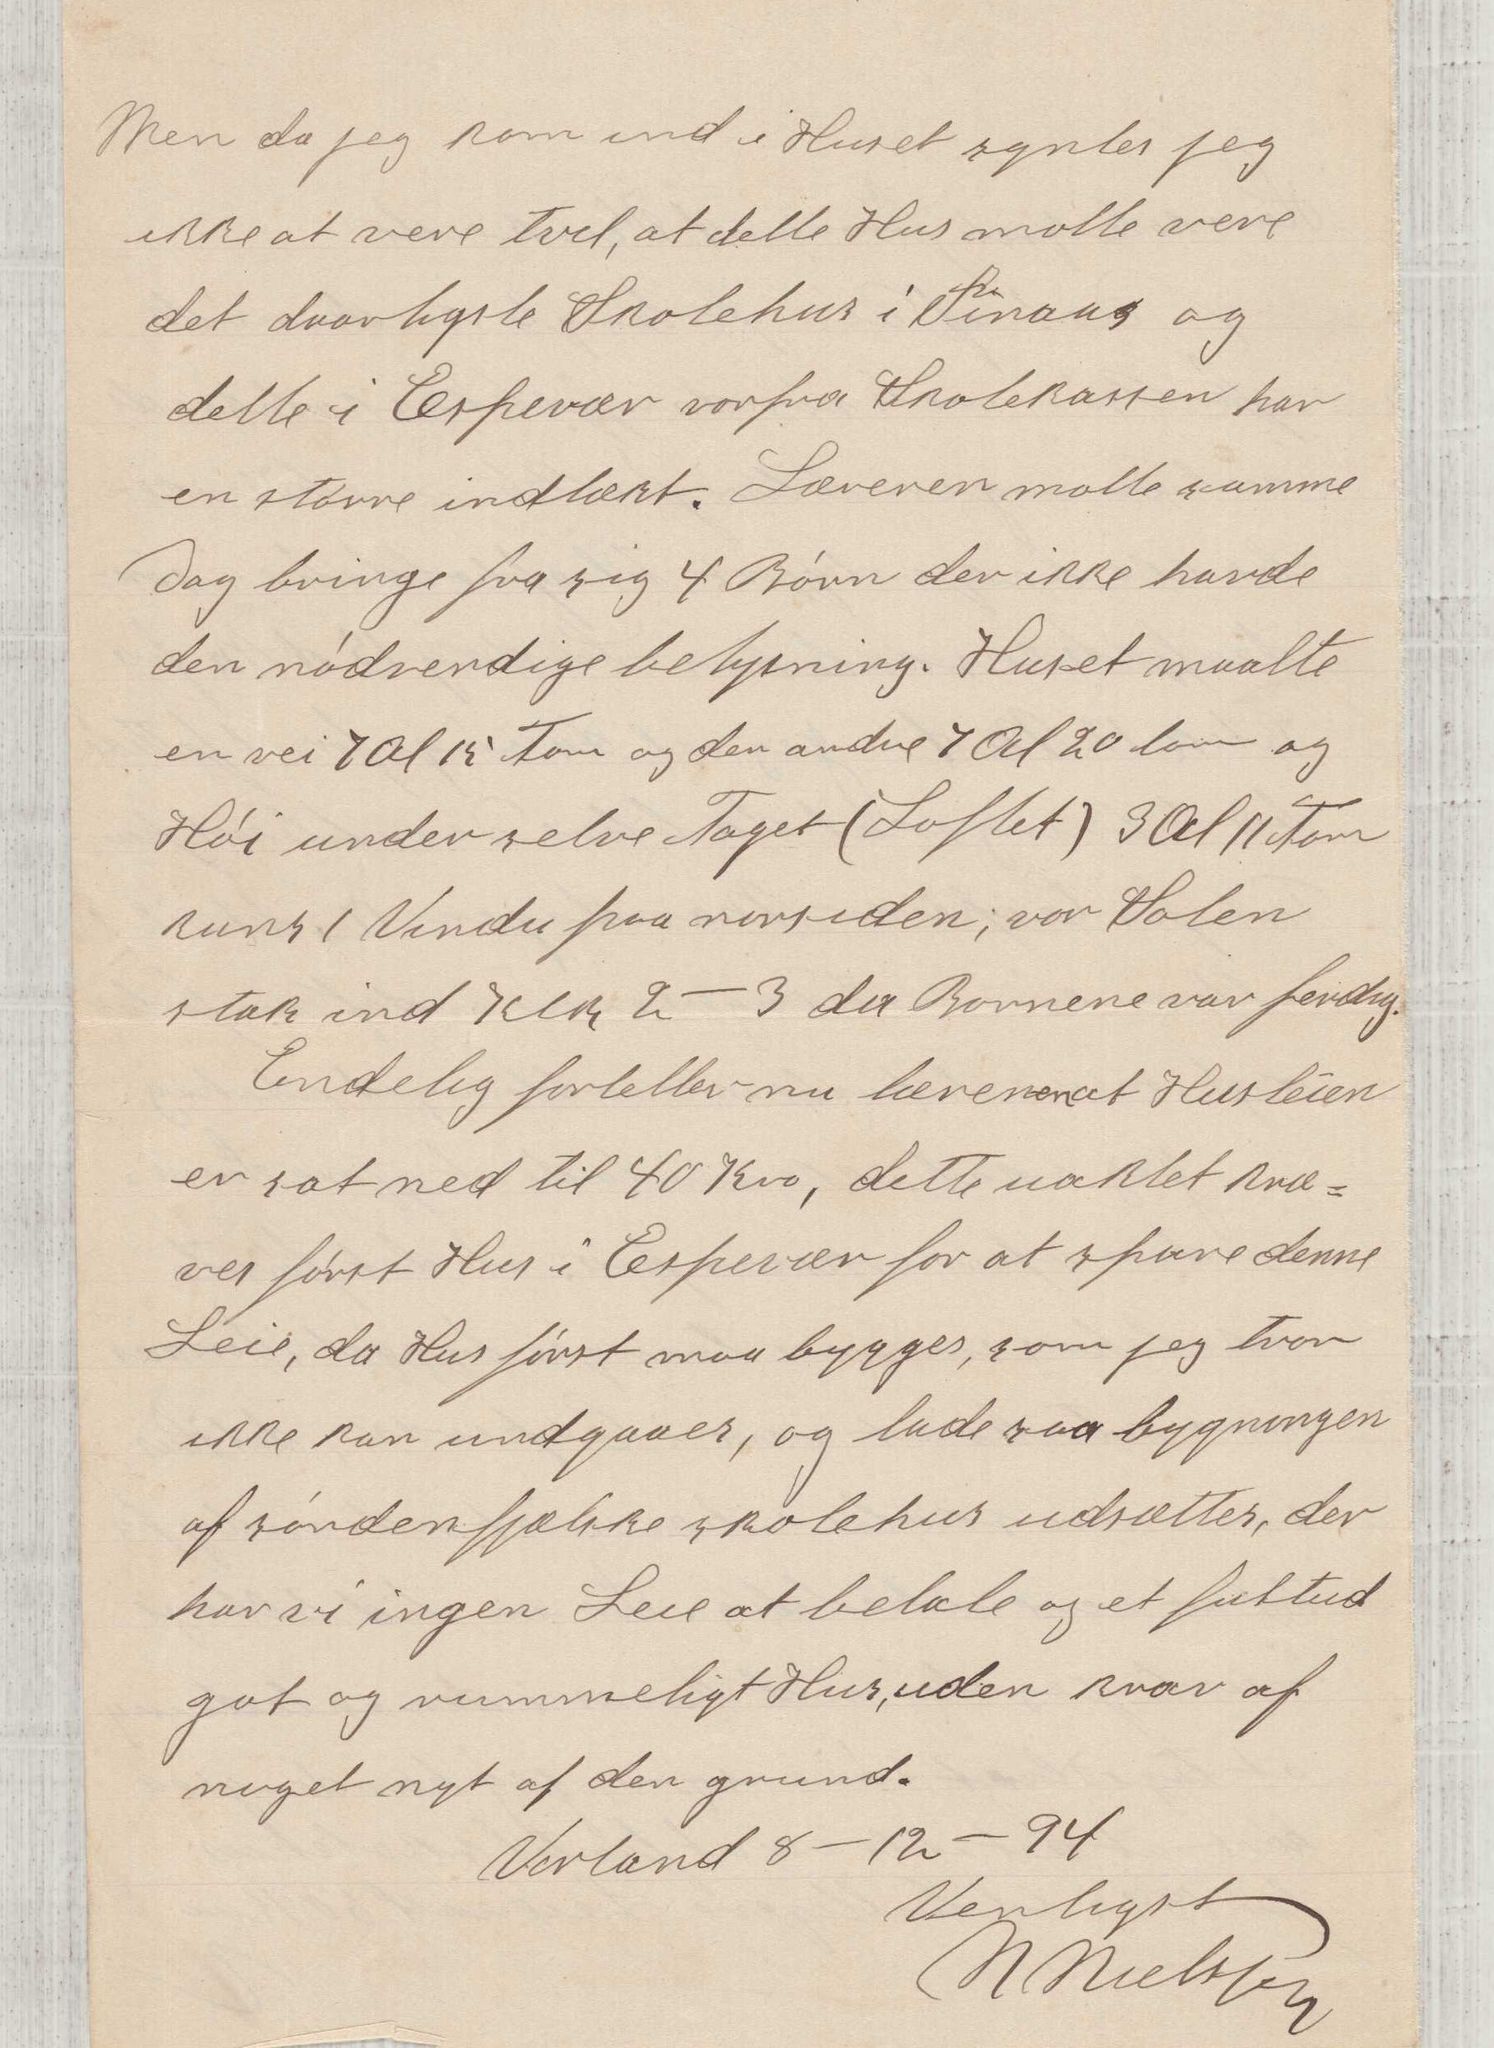 Men da jeg kom ind i Huset syntes jeg
ikke at vere tvil, at dette Hus motte vere
det daarligste Skolehus i Finaas og
dette i Espevær vorfra Skolekassen har
en större indtækt. Læreren motte samme
Dag bringe fra sig 4 Börn der ikke havde
den nödvendige belysning. Huset maalte
en vei 7 Al 15 Tom og den andre 7 Al 20 tom og
Höi under selve Taget (Loftet) 3 Al 11 Tom
kuns 1 Vindu paa norsiden; vor Solen
stak ind Klk 2 — 3 da Bornene var ferdig.
Endelig forteller nu læreren at Husleien
er sat ned til 40 Kro, dette uaktet kræ=
ves först Hus i Espevær for at spare denne
Leie, da Hus först maa bygges, som jeg tror
ikke kan undgaaes, og lade saa bygningen
af söndenfjelske skolehus udsættes, der
har vi ingen Leie at betale og et
got og rummeligt Hus, uden krav af
noget nyt af den grund.
Vorland 8 — 12 — 94
Venligst
N Nielsen